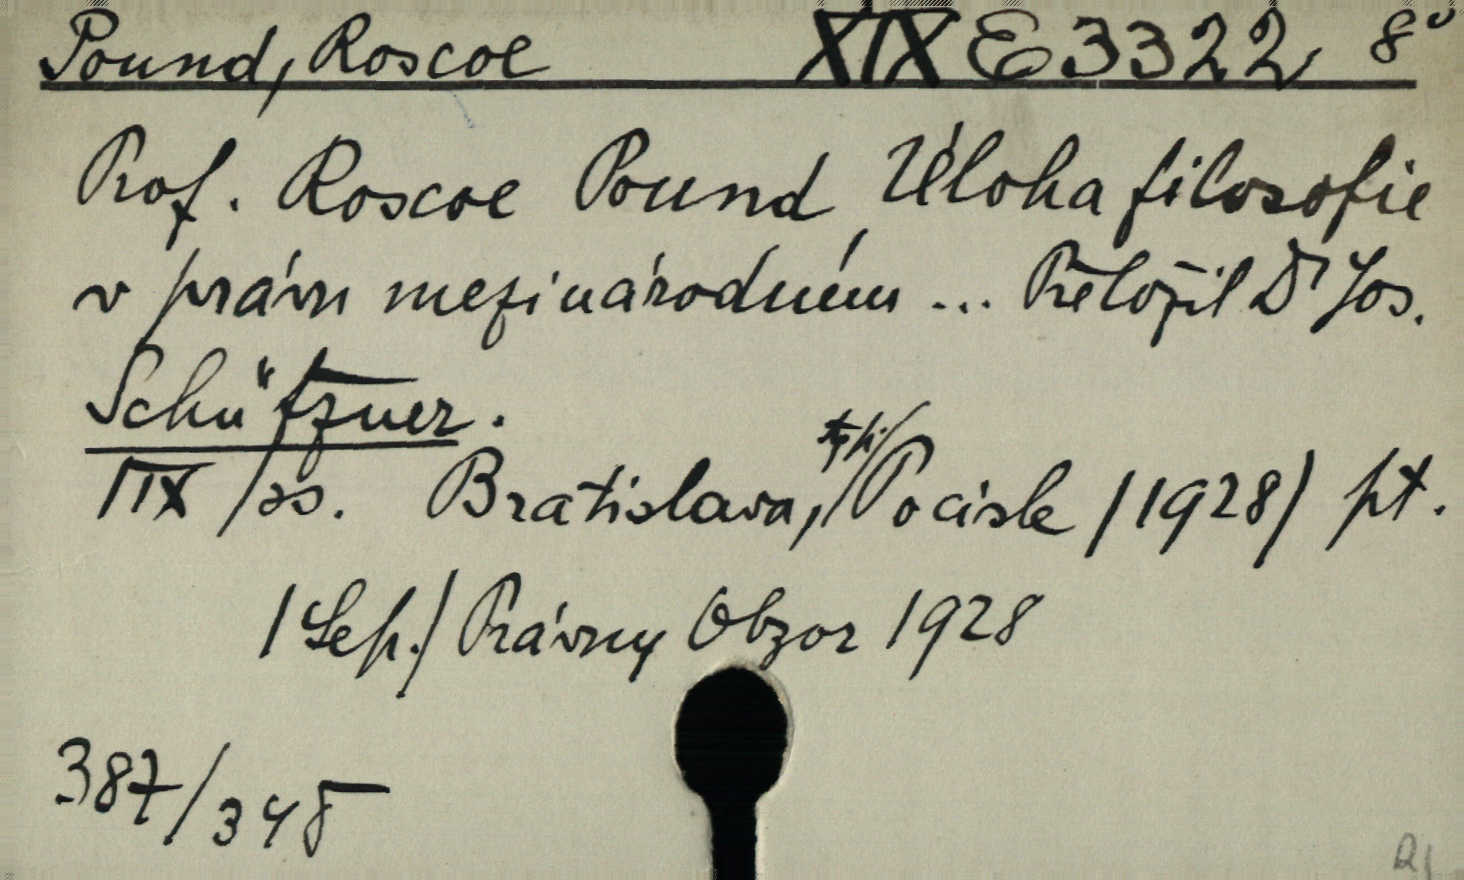 Pound, Roscoe XIX E 3322, 8°
Prof. Roscoe Pound Úloha filosofie
v právu mezinárodném ... Přeložil Dr Jos.
Schützner.
/ss. Bratislava, typ./Pocisk /1928/ pt.
/Sep./ Právny Obzor 1928
387/345